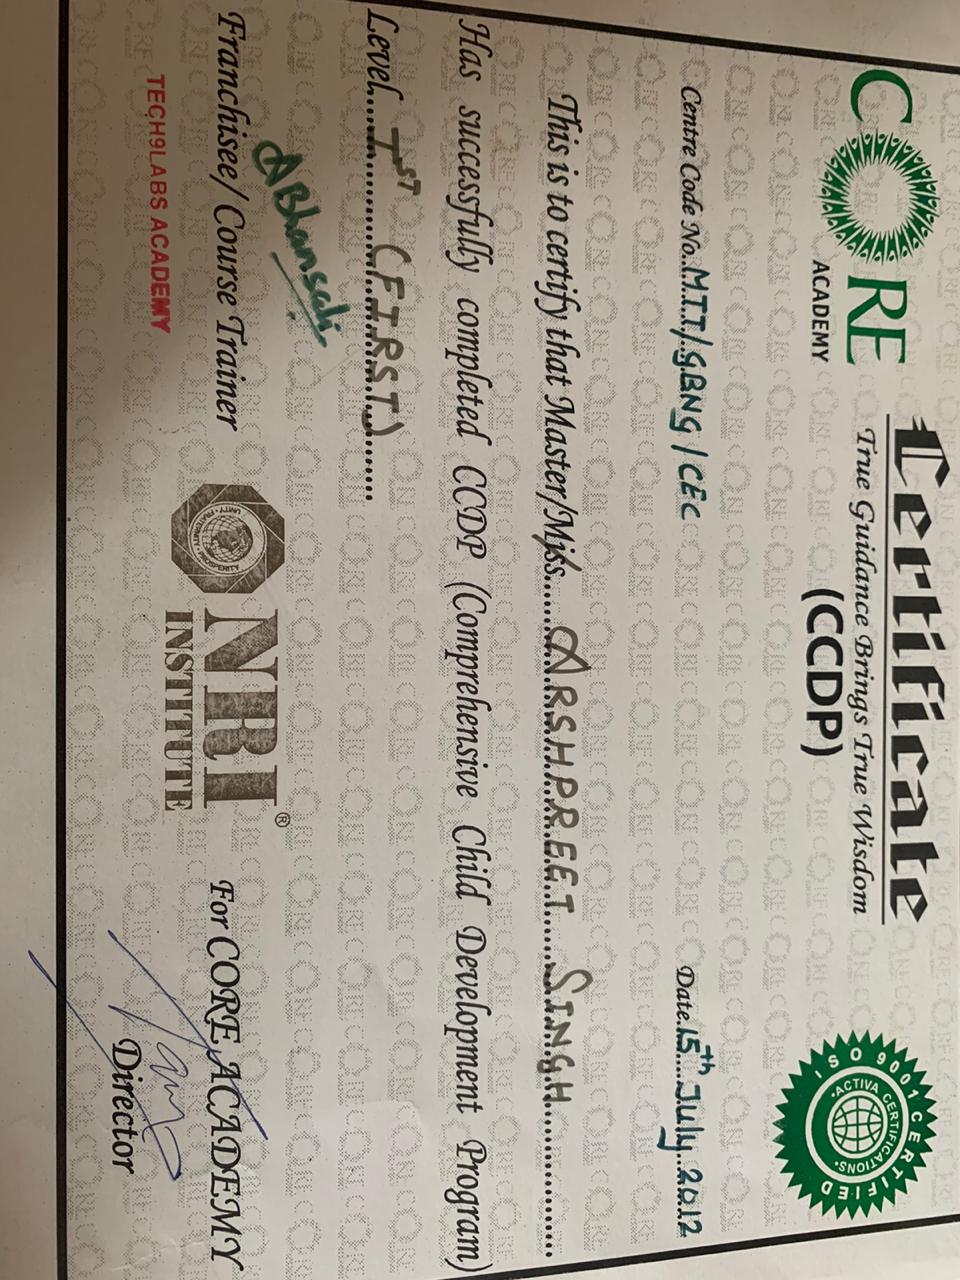 CORE
ACADEMY
Certificate
True Guidance Brings True Wisdom
(CCDP)
ISO 9001 CERTIFIED
ACTIVA CERTIFICATIONS
Centre Code No..M.I.T/.G.BNG/CEC
Date.15th July..2012
This is to certify that Master/Miss......ARSHPREET SINGH......
Has successfully completed CCDP (Comprehensive Child Development Program)
Level....Ist (FIRST)......
ABhansali
Franchisee/Course Trainer
TECH9LABS ACADEMY
UNITY FRATERNITY PROSPERITY
NRI®
INSTITUTE
For CORE ACADEMY
Director